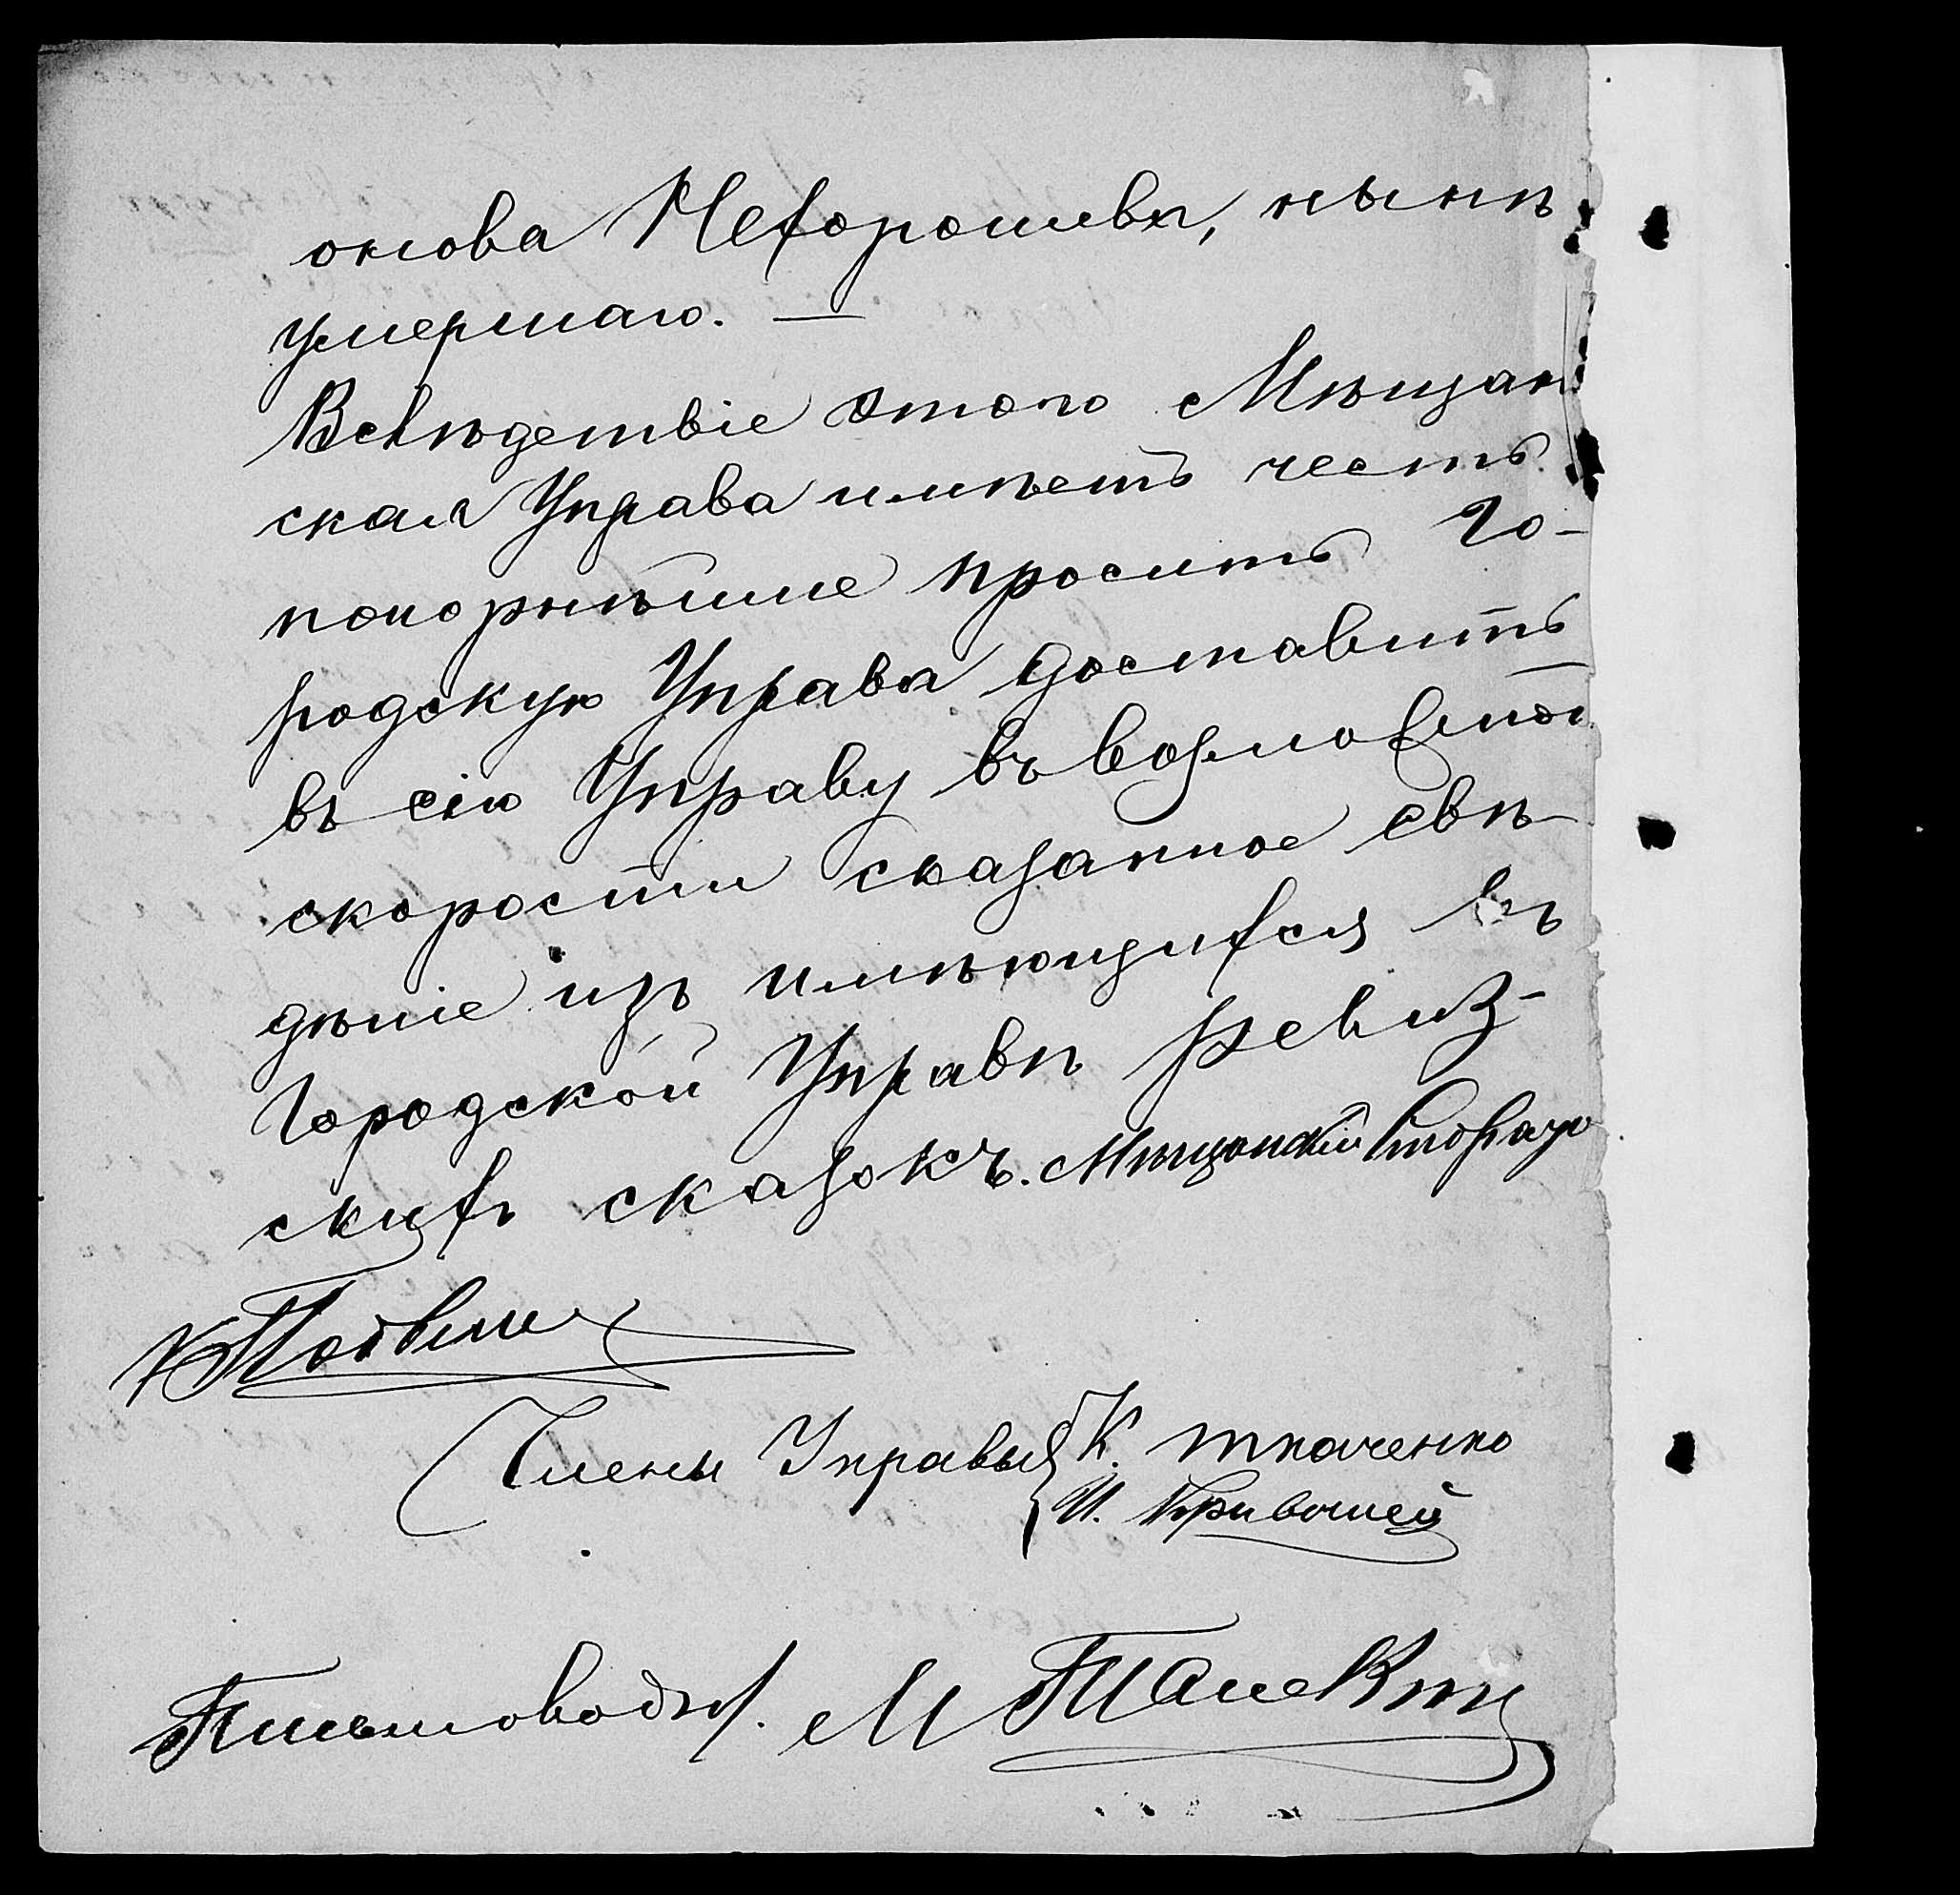 онова Нехорошева, нынѣ
умершаго. —
Вслѣдствіе этого Мѣщан
ская Управа имѣетъ честь
покорнѣйше просить Го-
родскую Управа доставить
въ сію Управу въ возможной
скорости сказанное свѣ-
дѣніе изъ имѣющихся въ
Городской Управѣ ревиз-
скихъ сказокъ. Мѣщанскій Староста
Члены Управы К. Ткаченко
И. Кривошей
Письмовод. М